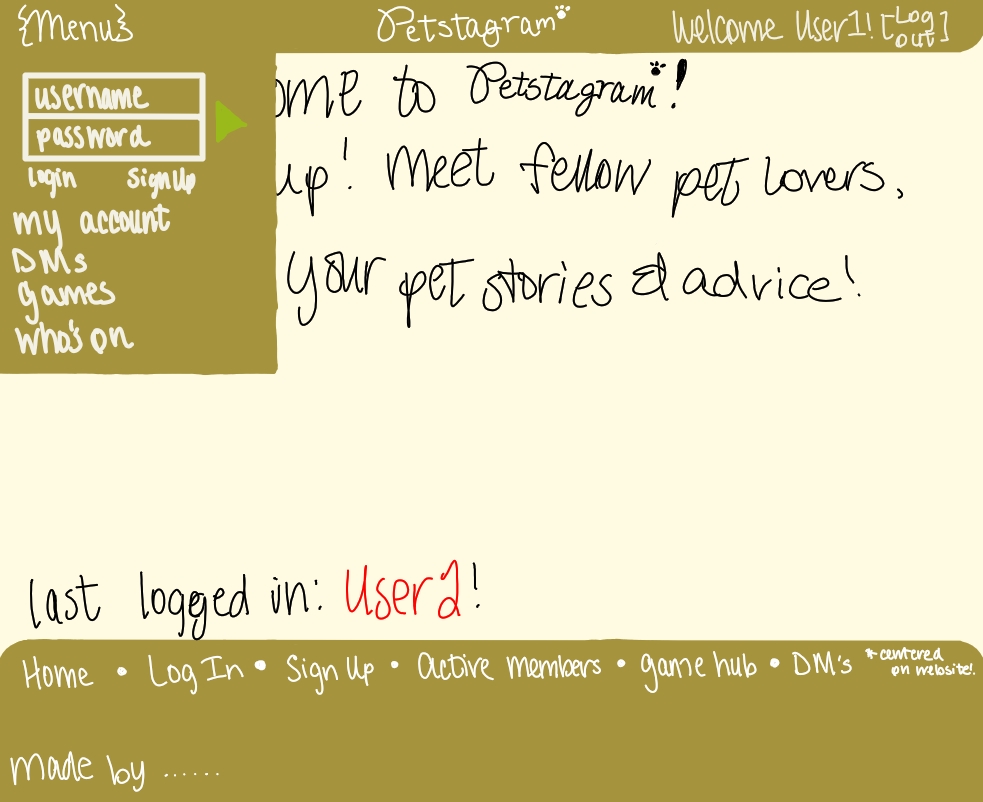 {Menu} Petstagram Welcome User1! [Log out]
username
password
login Sign Up
my account
DMs
games
who's on
ome to Petstagram!
up! Meet fellow pet lovers,
your pet stories & advice!
last logged in: User2!
Home • Log In • Sign Up • active members • game hub • DM's *centered on website!
made by ......